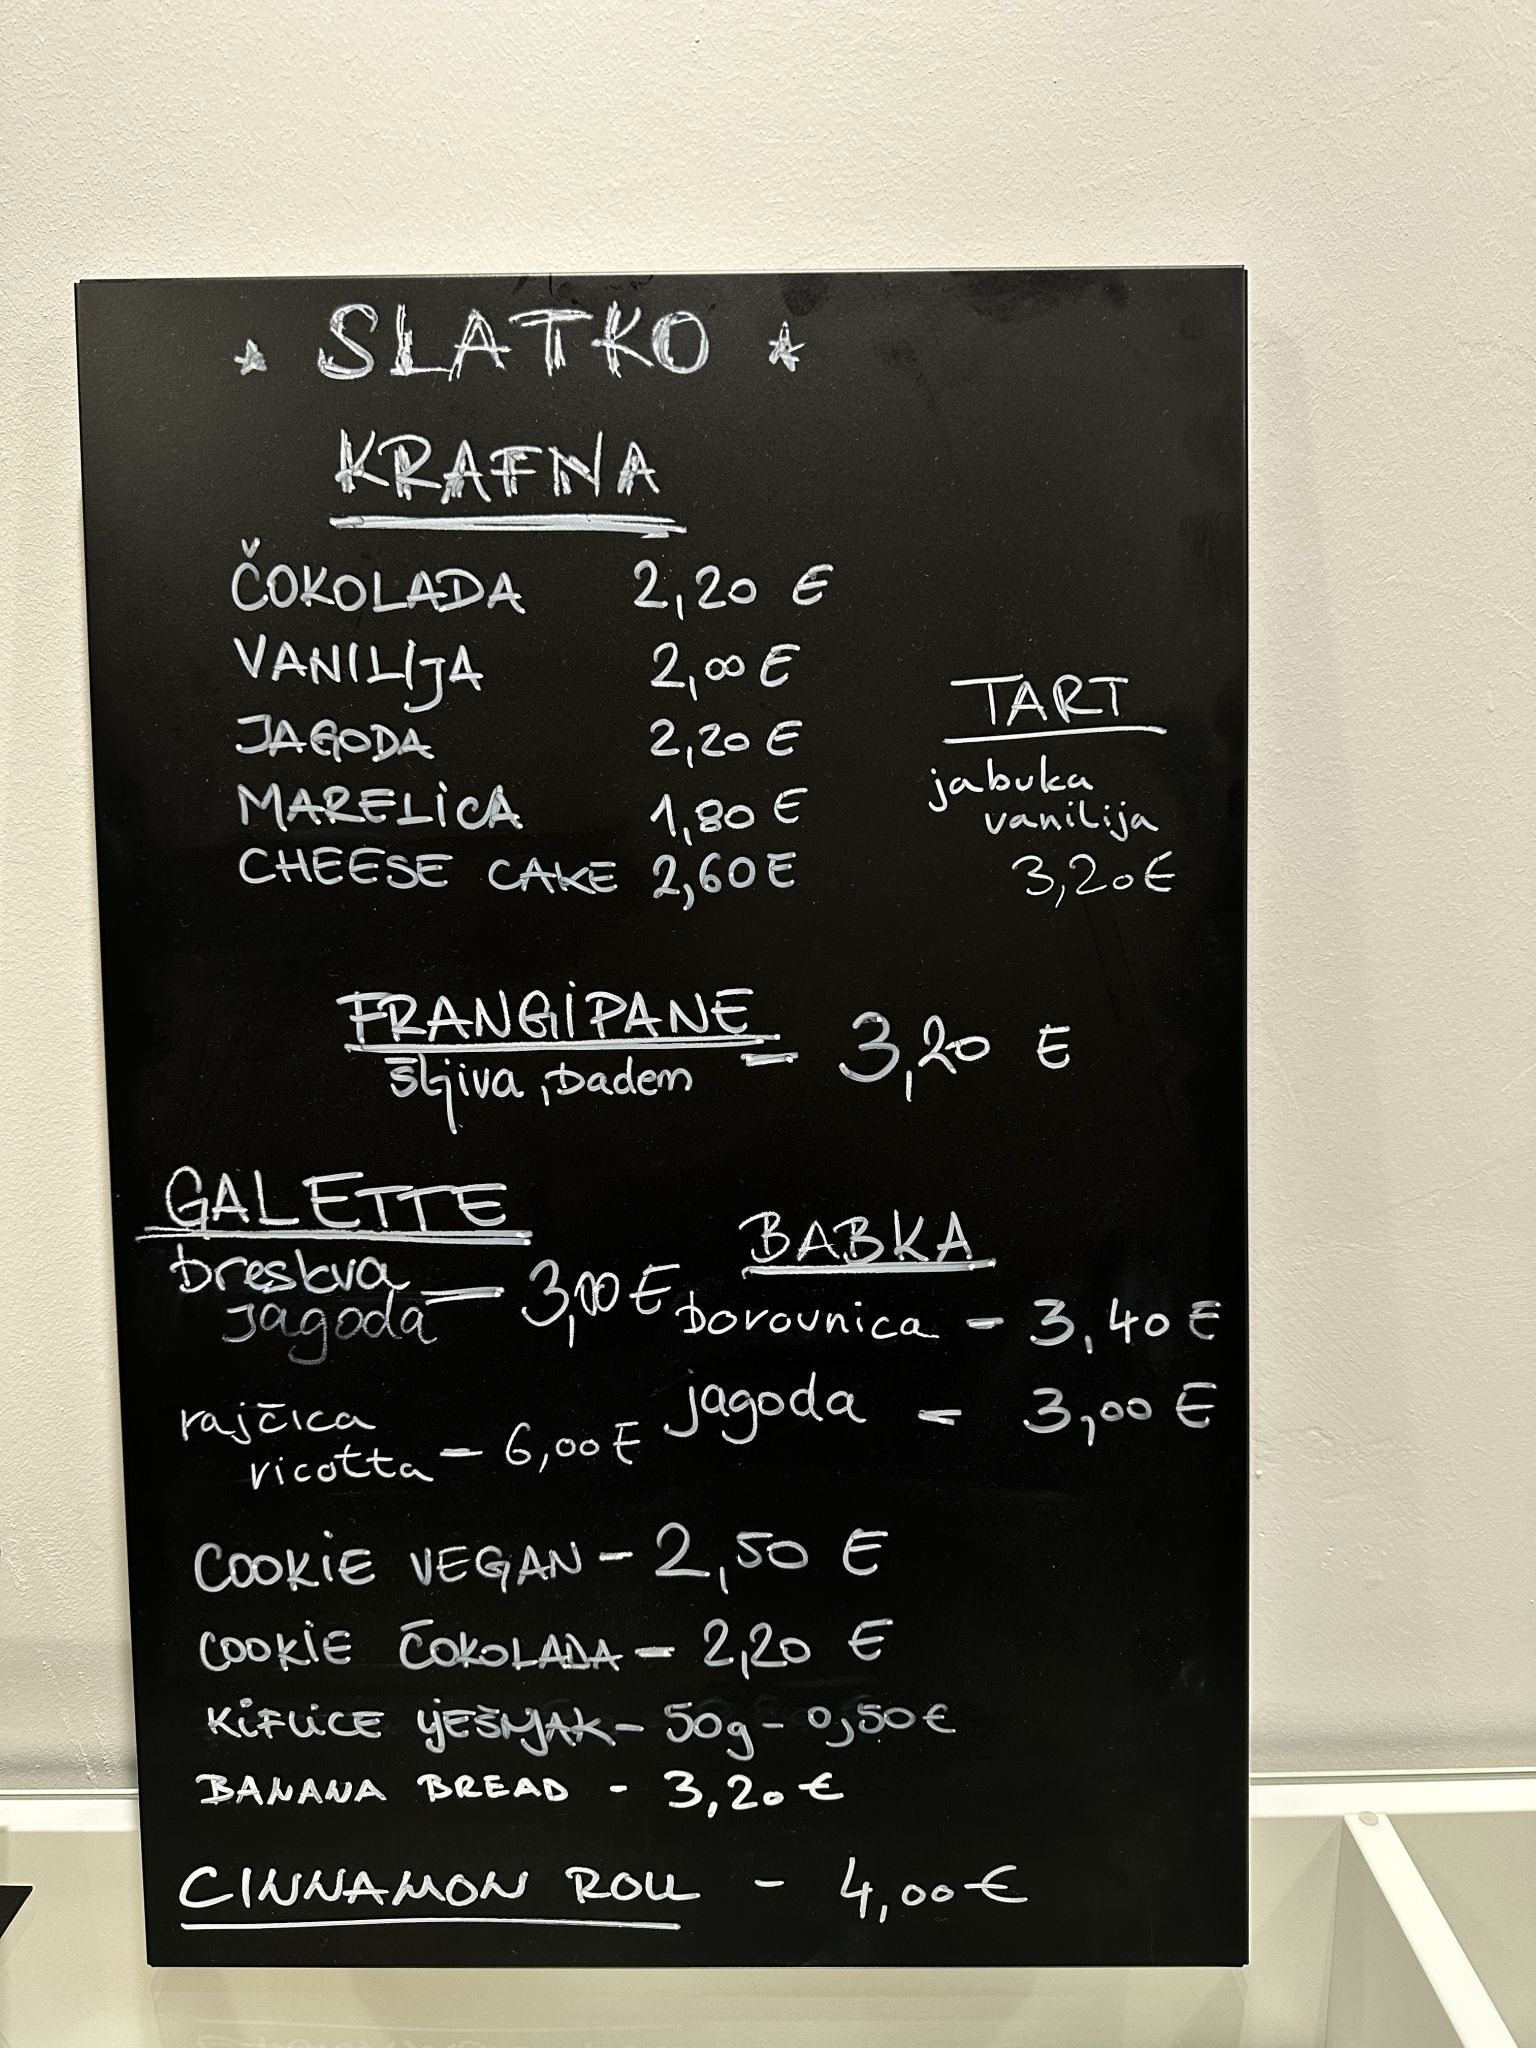 ★ SLATKO ★
KRAFNA
ČOKOLADA 2,20 €
VANILIJA 2,00 €
JAGODA 2,20 €
MARELICA 1,80 €
CHEESE CAKE 2,60 €
TART
jabuka
vanilija
3,20 €
FRANGIPANE = 3,20 €
šljiva, badem
GALETTE
breskva
jagoda = €
rajčica
ricotta - 6,00 €
BABKA
borovnica - 3,40 €
jagoda - 3,00 €
COOKIE VEGAN - 2,50 €
COOKIE ČOKOLADA - 2,20 €
KIFLICE LJEŠNJAK - 50g - 0,50 €
BANANA BREAD - 3,20 €
CINNAMON ROLL - 4,00 €